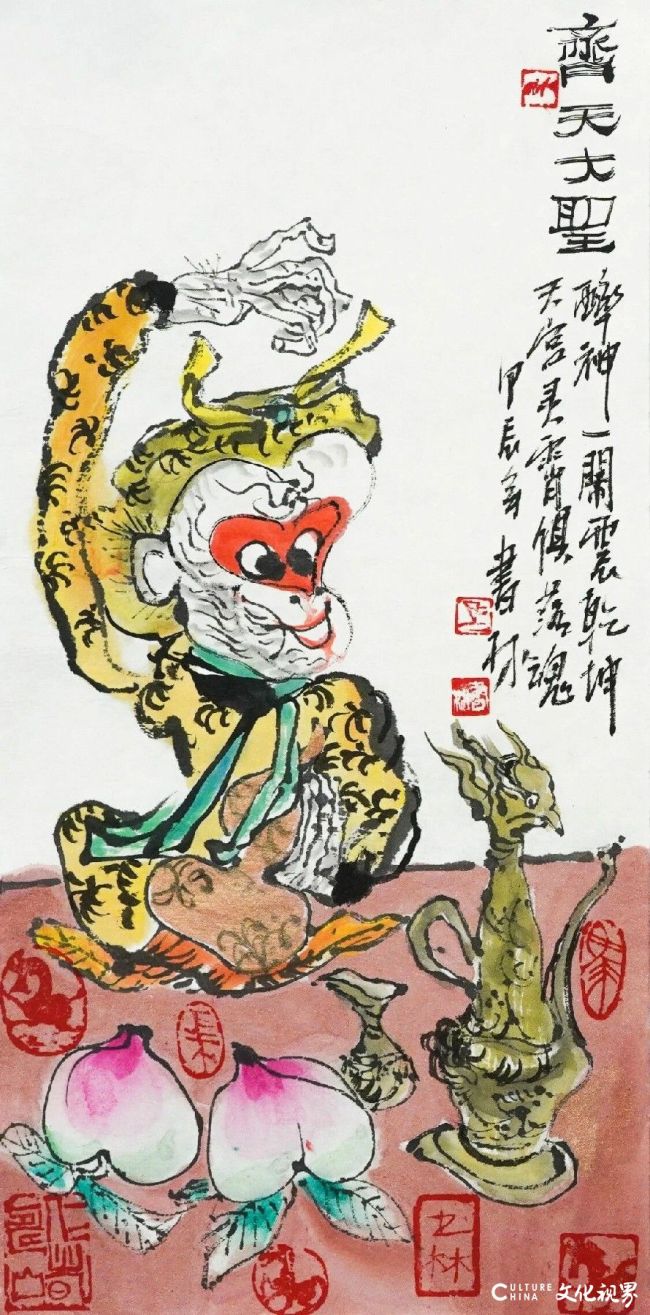 齊天大聖
醉神一閙震乾坤
天宫灵霄俱落魂
甲辰年書林
书林
CULTURE
CHINA
文化视界